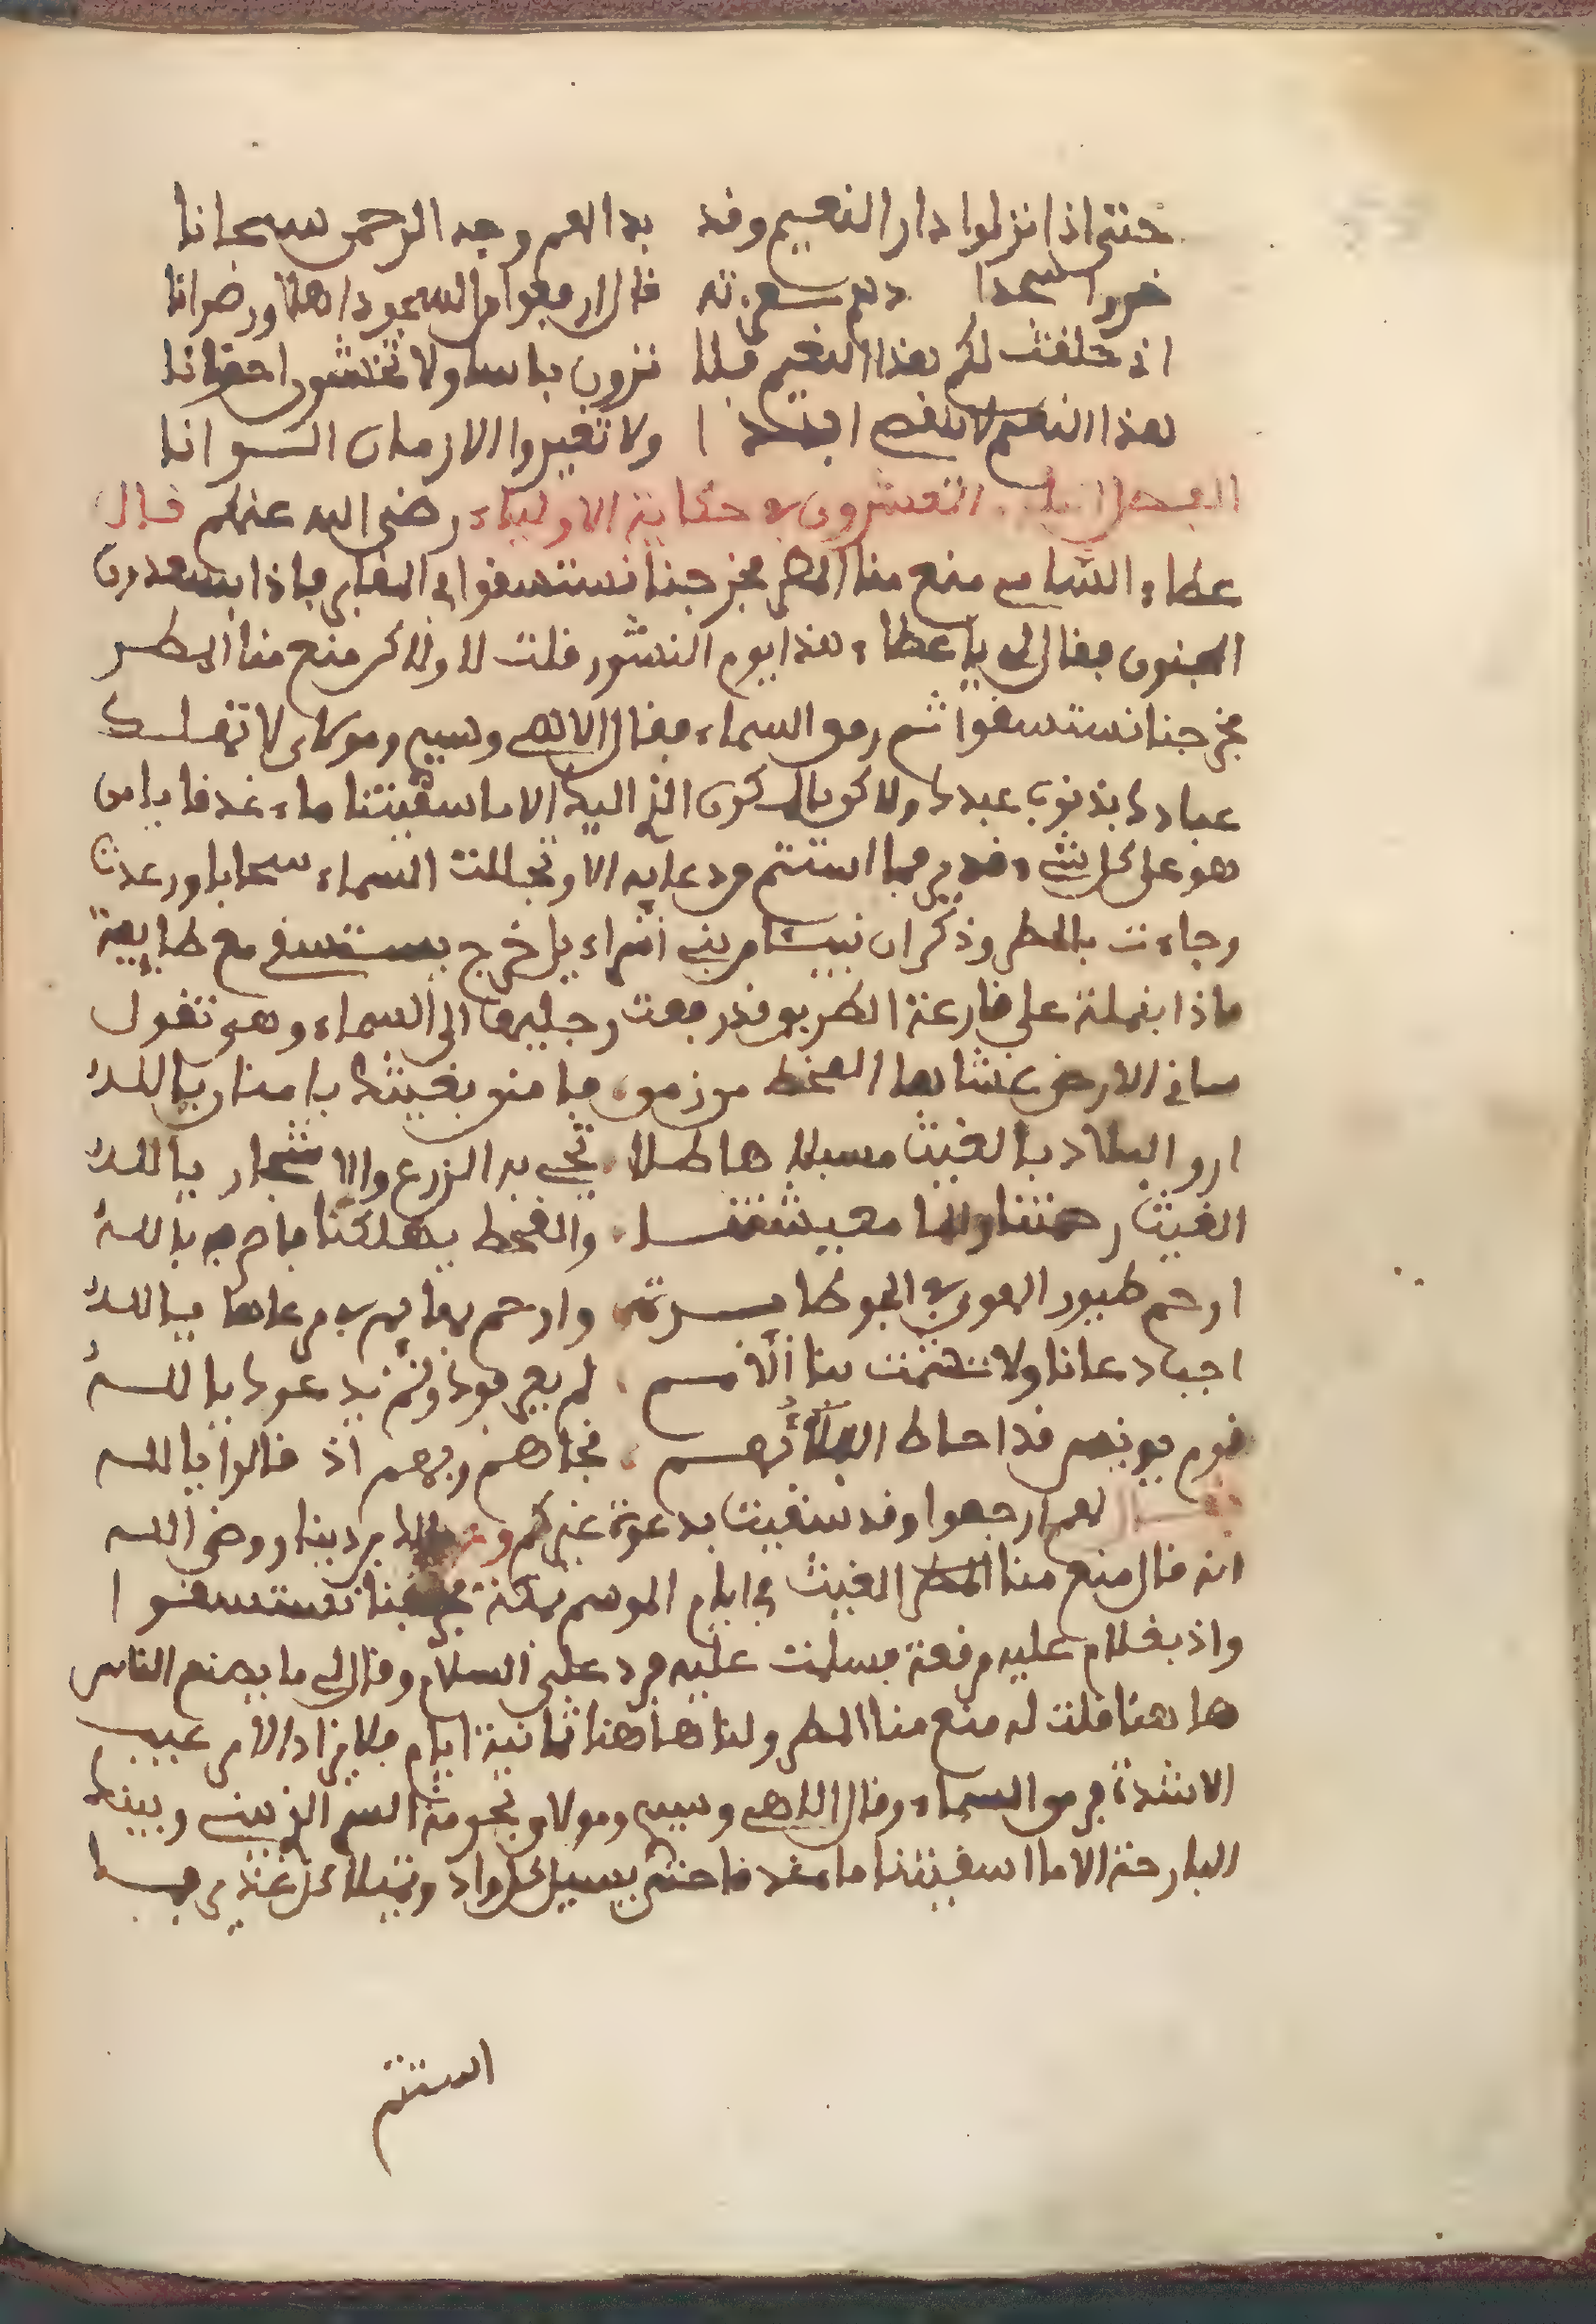 حتى اذا نزلوا دار النعيم وقد بدا لهم وجه الرحمن سبحانا
خروا سجدا قال ارفعوا من السجود اهلا ورضوانا
اني خلقت لكم هذا النعيم فلا ترون باسا ولا تخشون احزانا
هذا النعيم لا ينقضي ابدا ولا تغيروا الازمان الوانا
الفصل العشرون في حكاية الاولياء رضي الله عنهم قال
عطاء السلمي منع منا المطر فخرجنا نستسقوا في المقابر فاذا بسعدون
المجنون فقال لي يا عطاء هذا يوم النشور قلت لا ولاكن منع منا المطر
فخرجنا نستسقوا ثم رمق السماء فقال الاهي وسيدي ومولاي لا تهلك
عبادك بذنوب عبيدك ولاكن بالسر الذي اليه الا ما سقيتنا ماء غدقا يا من
هو على كل شيء قدير فما استتم من دعايه الا وتجللت السماء سحابا ورعدت
وجاءت بالمطر وذكر ان نبيئا من بني اسراءيل خرج يستسقي مع طايفة
فاذا بنملة على قارعة الطريق قد رفعت رجليها الى السماء وهي تقول
سائر الارض غشاها القحط من زمن فامنن بغيثك يا منان يا الله
ارو البلاد بالغيث مسبلا هاطلا تحي به الزرع والاشجار يا الله
الغيث رحمتنا ولنا معيشتنا والقحط يهلكنا فاصرفه يا الله
ارحم طيور الهوى في الجو طايرة وارحم بهايم في مرعاها يا الله
اجب دعانا ولا تشمت بنا الامم لم يعرفوك ولم يدعوك يا الله
قوم يونس قد احاط البلاء بهم نجاهم ربهم اذ قالوا يا الله
فقال لهم ارجعوا وقد سقيت بدعوة غيركم وعن مالك بن دينار رضي الله
انه قال منع منا المطر الغيث في ايام الموسم بمكة فخرجنا نستسقوا
واذ بغلام عليه مرقعة فسلمت عليه فرد علي السلام وقال لي ما يصنع الناس
هاهنا قلت له منع منا المطر ولنا هاهنا ثمانية ايام فلا يزاد الامر عجيب
الا شدة فرمق السماء وقال الاهي وسيدي ومولاي بحرمة السر الذي بيني وبينك
البارحة الا ما اسقيتنا ماء غدقا حتى يسيل كل واد ويمتلا كل غدير فما
استتم